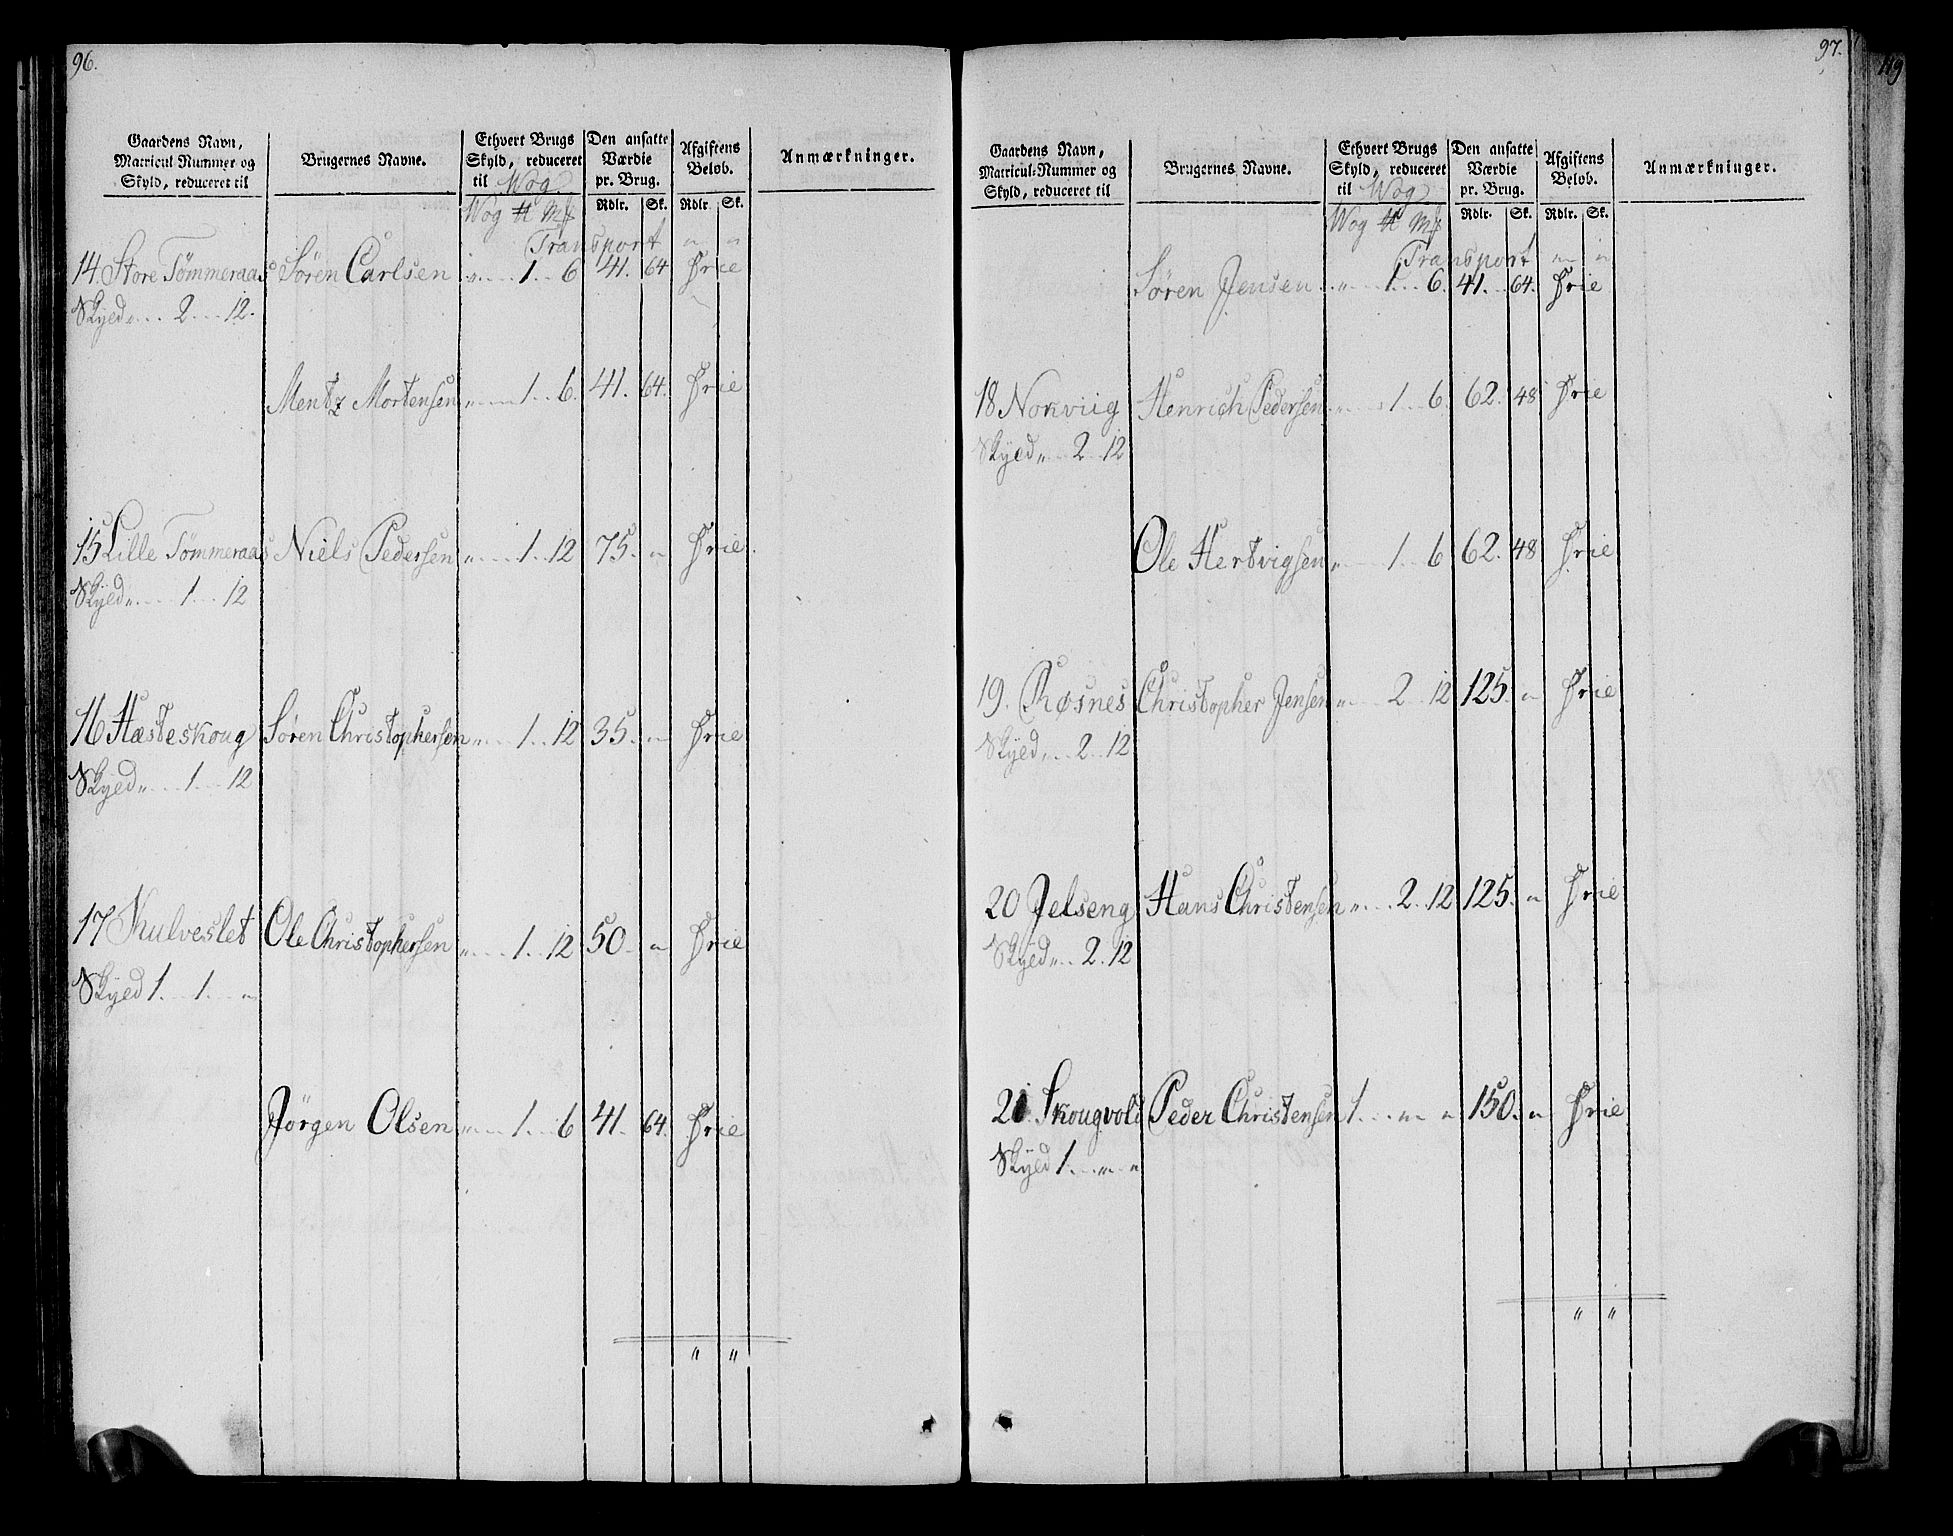 96.
Gaardens Navn, Matricul Nummer og Skyld, reduceret til
Brugernes Navne.
Ethvert Brugs Skyld, reduceret til Wog
Den ansatte Værdie pr. Brug.
Afgiftens Beløb.
Anmærkninger.
Wog ℔ Mk
Rdlr. Sk. Rdlr. Sk.
Transport " "
14. Store Tømmeraas Søren Carlsen " 1 6 41. 64 Frie
Skyld " 2 12.
Mentz Mortensen " 1 6. 41. 64. Frie
15 Lille Tømmeraas Niels Pedersen " 1 12 75. " Frie.
Skyld " 1 12
16 Hæsteskoug Søren Christophersen " 1 12 35. " Frie
Skyld " 1 12
17 Kulveslet Ole Christophersen " 1 12 50. " Frie
Skyld 1. 1. "
Jørgen Olsen " 1 6 41. 64. Frie
" "
97.
119
Gaardens Navn, Matricul-Nummer og Skyld, reduceret til
Brugernes Navne.
Ethvert Brugs Skyld, reduceret til Wog
Den ansatte Værdie pr. Brug.
Afgiftens Beløb.
Anmærkninger.
Wog ℔ Mk
Rdlr. Sk. Rdlr. Sk.
Transport " "
Søren Jensen " 1 6. 41. 64. Frie
18 Norviig Henrich Pedersen " 1 6. 62. 48 Frie
Skyld " 2 12
Ole Hertvigsen " 1 6 62. 48 Frie
19. Røsnes Christopher Jensen " 2 12 125. " Frie
Skyld " 2 12
20 Jelseng Hans Christensen " 2 12 125. " Frie
Skyld " 2. 12
21. Skougvold Peder Christensen 1. " " 150. " Frie
Skyld 1. " "
" "